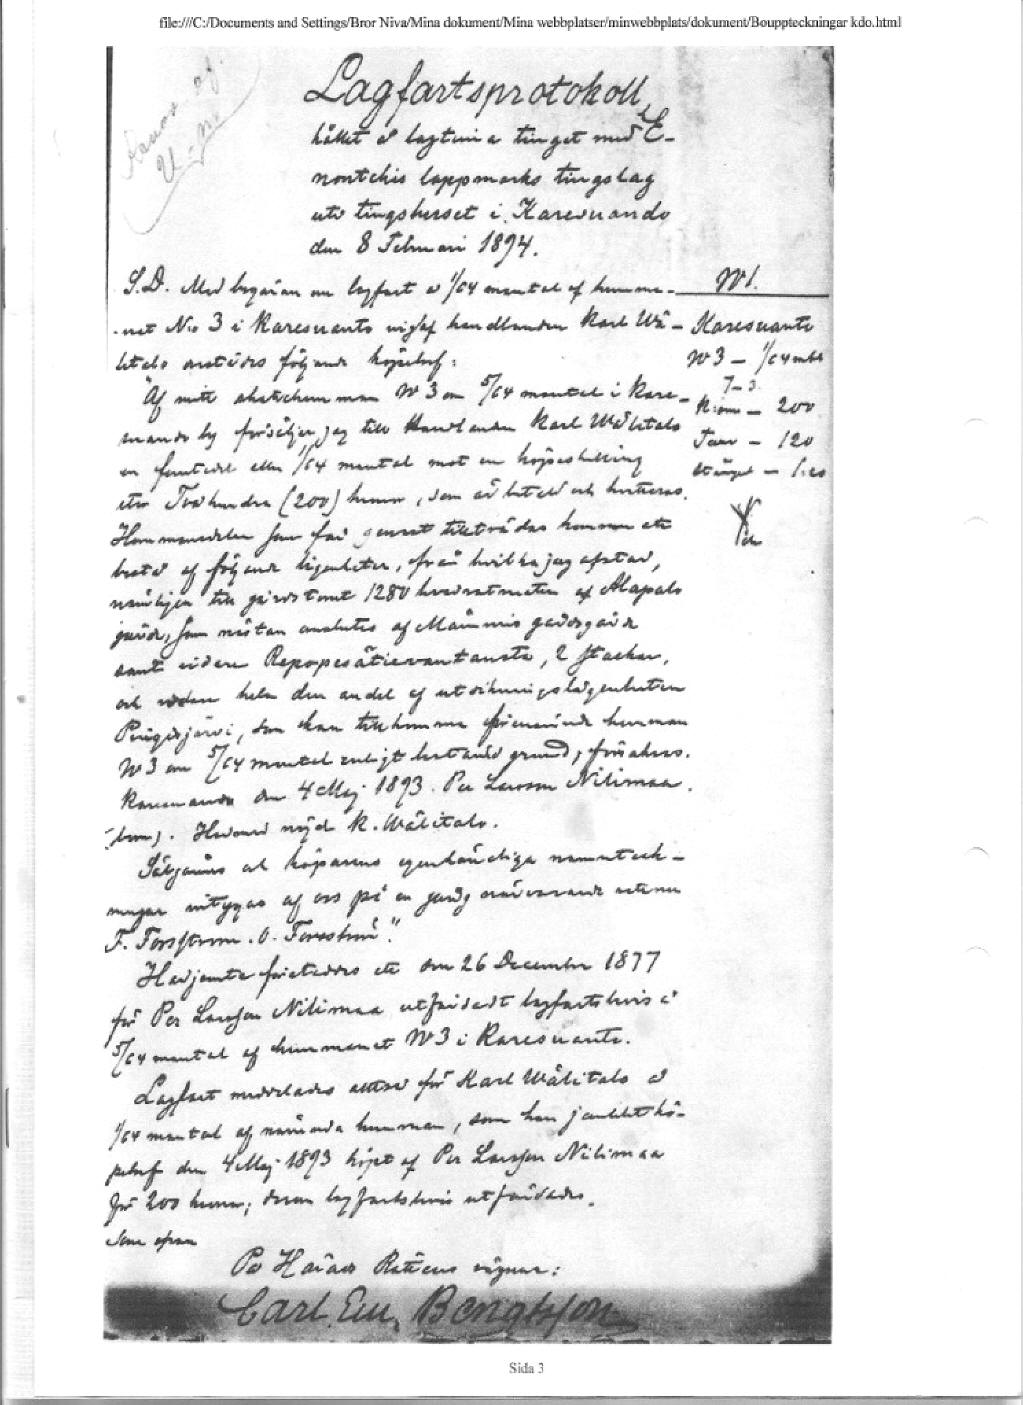 file:///C:/Documents and Settings/Bror Niva/Mina dokument/Mina webbplatser/minwebbplats/dokument/Bouppteckningar kdo.html
Lagfartsprotokoll,
hållet å lagtima tinget med E-
nontekis lappmarks tingslag
uti tingshuset i Karesuando
den 8 Februari 1894.
S.D. Med begäran om lagfart å 1/64 mantal af hemma-
net No 3 i Karesuanto ingaf handlanden Karl Wä-
litalo följande köpebref:
№ 1.
Karesuanto
№ 3 – 1/64 mtl
– 200
– 120
"Af mitt skattehemman № 3 om 5/64 mantal i Kare-
suando by försäljer jag till Handlanden Karl Wälitalo
en femtedel eller 1/64 mantal mot en köpeskilling
stor Tvåhundra (200) kronor, som är betald och kvitteras.
Hemmansdelen som får genast tillträdas kommer att
bestå af följande lägenheter, från hvilka jag afstår,
nämligen till gårdstomt 1280 kvadratmeter af Alapalo
gärde, som nästan anslutes af Mämmis gärdsgård
samt vidare 2 stackar,
och vidare hela den andel af utsikningslägenheten
som kan tillkomma förenämnda hemman
№ 3 om 5/64 mantal enligt bestämd grund, försäkras.
Karesuando den 4 Maj 1893. Per Larsson Niilimaa.
Härmed nöjd K. Wälitalo.
Säljarens och köparens egenhändiga namnteck-
ningar intygas af oss på en gång närvarande vittnen
F. Forsström. O. Forsström."
Härjemte företeddes ett den 26 December 1877
för Per Larsson Niilimaa utfärdadt lagfartsbevis å
5/64 mantal af hemmanet № 3 i Karesuanto.
Lagfart meddelades alltså för Karl Wälitalo å
1/64 mantal af nämnda hemman, som han jemlikt kö-
pebref den 4 Maj 1893 köpt af Per Larsson Niilimaa
för 200 kronor; hvarom lagfartsbevis utfärdades.
Som ofvan
På Härads Rättens vägnar:
Carl Em. Bengtsson
Sida 3